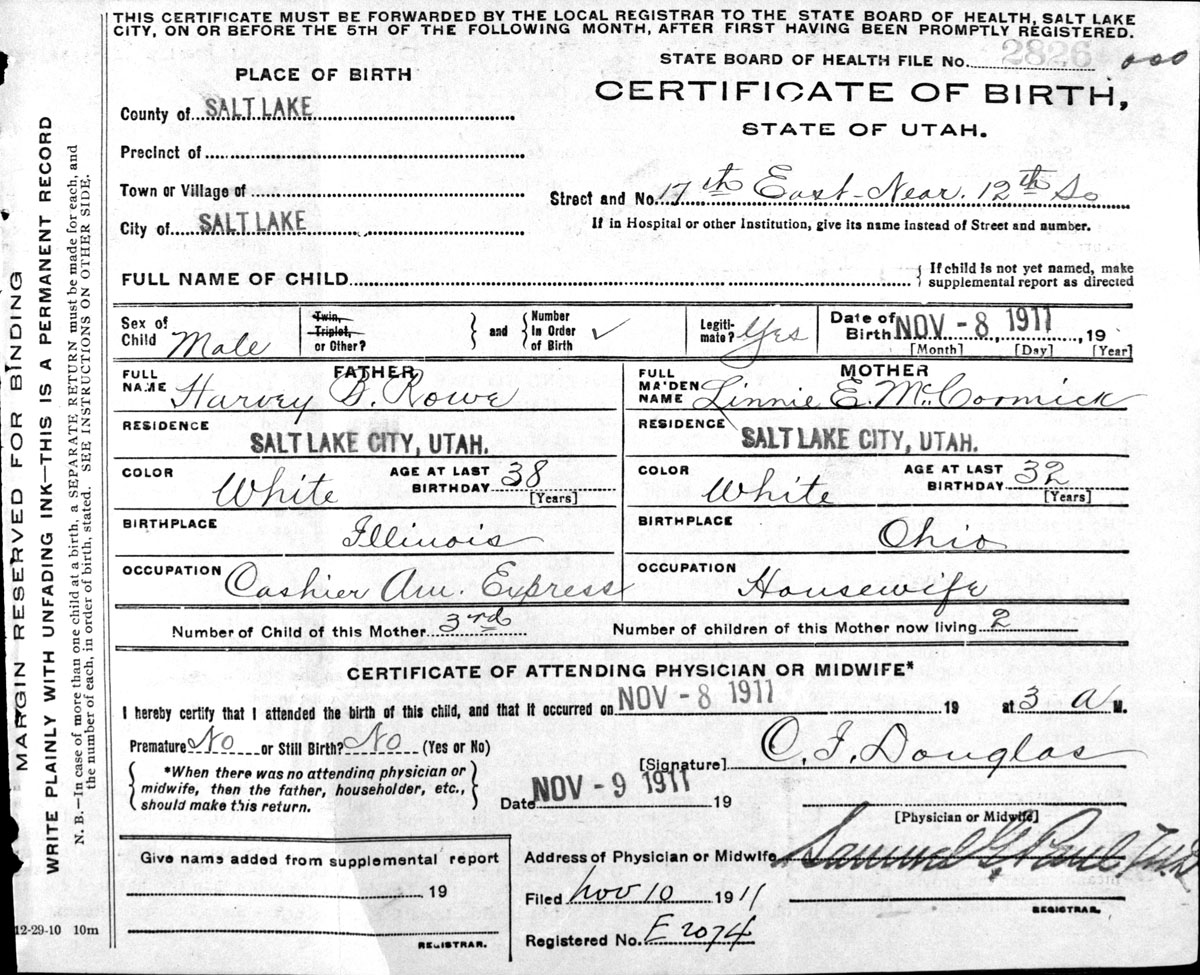 THIS CERTIFICATE MUST BE FORWARDED BY THE LOCAL REGISTRAR TO THE STATE BOARD OF HEALTH, SALT LAKE
CITY, ON OR BEFORE THE 5TH OF THE FOLLOWING MONTH, AFTER FIRST HAVING BEEN PROMPTLY REGISTERED.
STATE BOARD OF HEALTH FILE No. 2826
PLACE OF BIRTH
CERTIFICATE OF BIRTH,
STATE OF UTAH.
County of SALT LAKE
Precinct of
Town or Village of
Street and No. 17th East-Near. 12th So
City of SALT LAKE
If in Hospital or other Institution, give its name instead of Street and number.
FULL NAME OF CHILD
If child is not yet named, make
supplemental report as directed
Sex of
Child Male
Twin,
Triplet,
or Other?
and
Number
In Order
of Birth ✓
Legiti-
mate? Yes
Date of
Birth NOV - 8 1911, 19
[Month] [Day] [Year]
FATHER
FULL
NAME Harvey B. Rowe
RESIDENCE
SALT LAKE CITY, UTAH.
COLOR White
AGE AT LAST
BIRTHDAY 38
[Years]
BIRTHPLACE
Illinois
OCCUPATION
Cashier Am. Express
MOTHER
FULL
MAIDEN
NAME Linnie E. McCormick
RESIDENCE
SALT LAKE CITY, UTAH.
COLOR White
AGE AT LAST
BIRTHDAY 32
[Years]
BIRTHPLACE
Ohio
OCCUPATION
Housewife
Number of Child of this Mother 3rd
Number of children of this Mother now living 2
CERTIFICATE OF ATTENDING PHYSICIAN OR MIDWIFE*
I hereby certify that I attended the birth of this child, and that it occurred on NOV - 8 1911 19 at 3 a M.
Premature No or Still Birth? No (Yes or No)
*When there was no attending physician or
midwife, then the father, householder, etc.,
should make this return.
[Signature] C. I. Douglas
Date NOV - 9 1911 19
[Physician or Midwife]
Give name added from supplemental report
19
REGISTRAR.
Address of Physician or Midwife
Samuel G. Paul
Filed Nov 10 1911
REGISTRAR.
Registered No. E 2074
MARGIN RESERVED FOR BINDING
WRITE PLAINLY WITH UNFADING INK—THIS IS A PERMANENT RECORD
N. B.—In case of more than one child at a birth, a SEPARATE RETURN must be made for each, and
the number of each, in order of birth, stated. SEE INSTRUCTIONS ON OTHER SIDE.
12-29-10 10m